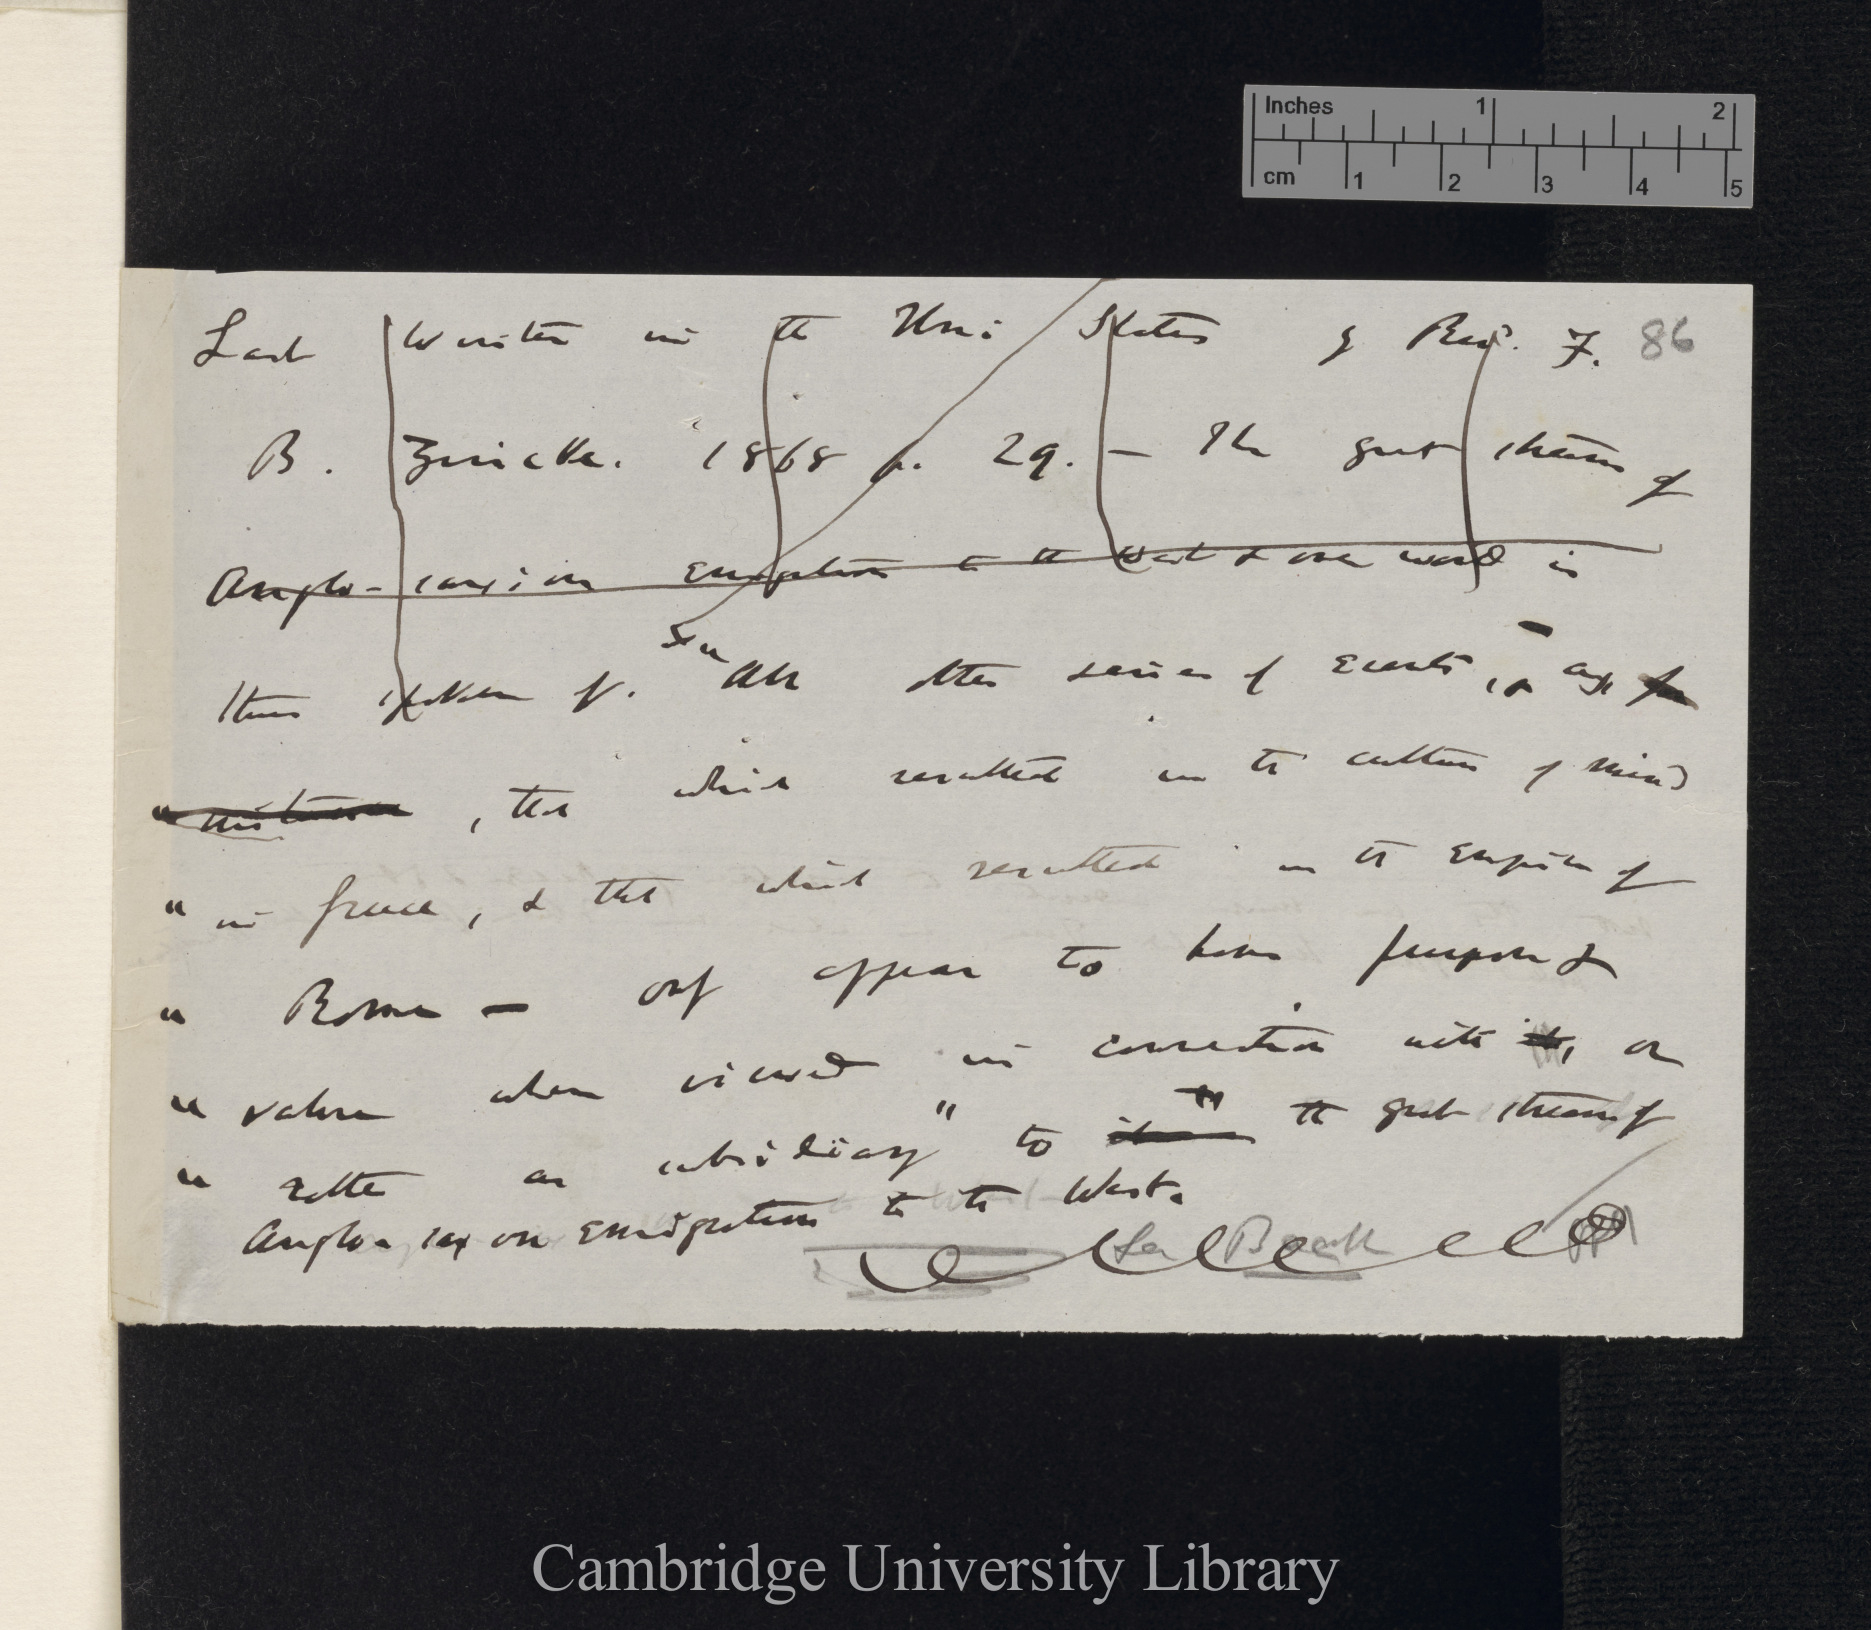 Inches 1 2
cm 1 2 3 4 5
86
Last Winter in the Uni States by Rev. F.
B. Zincke. 1868 p. 29. — The great stream of
Anglo-saxion emigration to the West & over world is
thus spoken of. "All other series of events,
, that which resulted in the culture of mind
" in Greece, & that which resulted in the Empire of
" Rome — only appear to have purpose &
" value when viewed in connection with, or
" rather as subsidiary" to the great stream of
Anglo-saxon emigration to the West.
Cambridge University Library